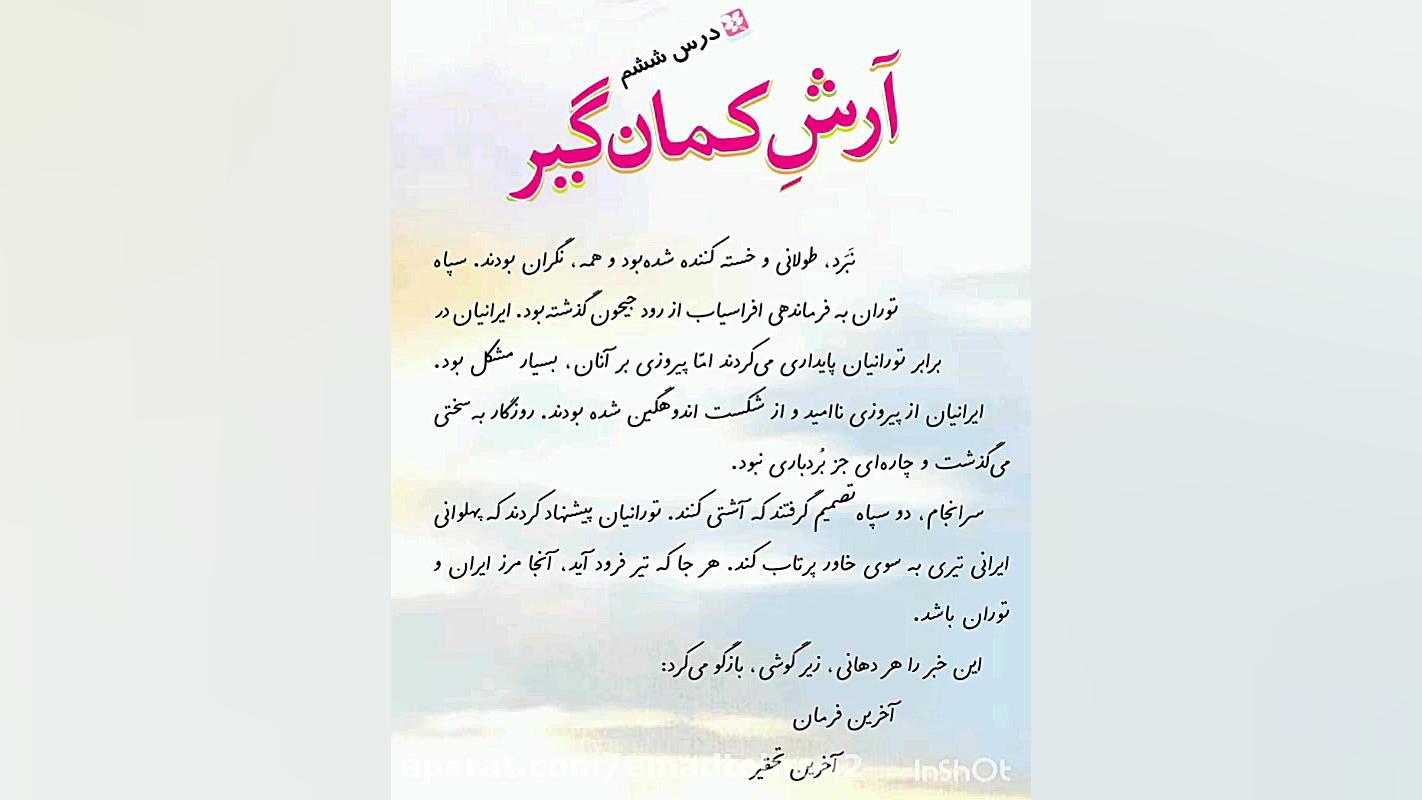 درس ششم
آرشِ کمان‌گیر
نَبَرد، طولانی و خسته کننده شده‌بود و همه، نگران بودند. سپاه
توران به فرماندهی افراسیاب از رود جیحون گذشته‌بود. ایرانیان در
برابر تورانیان پایداری می‌کردند امّا پیروزی بر آنان، بسیار مشکل بود.
ایرانیان از پیروزی ناامید و از شکست اندوهگین شده بودند. روزگار به سختی
می‌گذشت و چاره‌ای جز بُردباری نبود.
سرانجام، دو سپاه تصمیم گرفتند که آشتی کنند. تورانیان پیشنهاد کردند که پهلوانی
ایرانی تیری به سوی خاور پرتاب کند. هر جا که تیر فرود آید، آنجا مرز ایران و
توران باشد.
این خبر را هر دهانی، زیر گوشی، بازگو می‌کرد:
آخرین فرمان
آخرین تحقیر
InShOt